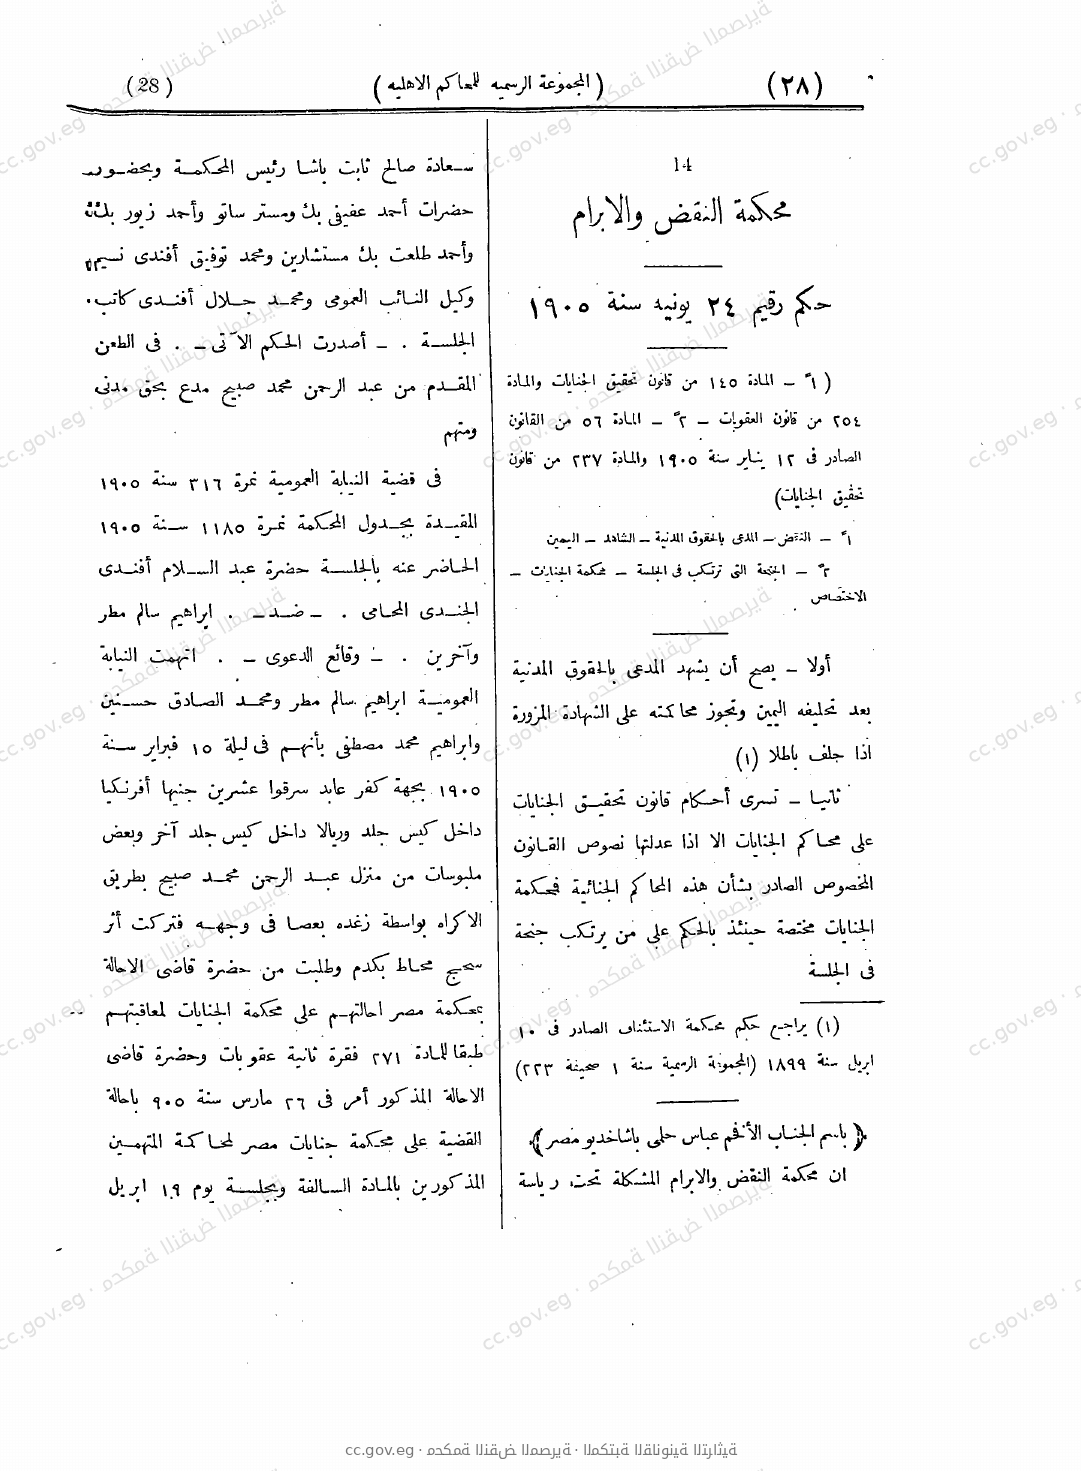 (٢٨) (المجموعة الرسميه للمحاكم الاهليه) (28)
14
محكمة النقض والابرام
حكم رقيم ٢٤ يونيه سنة ١٩٠٥
(١ً – المادة ١٤٥ من قانون تحقيق الجنايات والمادة
٢٥٤ من قانون العقوبات – ٢ً – المادة ٥٦ من القانون
الصادر فى ١٢ يناير سنة ١٩٠٥ والمادة ٢٣٧ من قانون
تحقيق الجنايات)
١ً – النقض – المدعى بالحقوق المدنية – الشاهد – اليمين
٢ً – الجنحة التى ترتكب فى الجلسة – محكمة الجنايات –
الاختصاص
أولا – يصح أن يشهد المدعى بالحقوق المدنية
بعد تحليفه اليمين وتجوز محاكمته على الشهادة المزورة
اذا حلف باطلا (١)
ثانيا – تسرى أحكام قانون تحقيق الجنايات
على محاكم الجنايات الا اذا عدلتها نصوص القانون
المخصوص الصادر بشأن هذه المحاكم الجنائية فمحكمة
الجنايات مختصة حينئذ بالحكم على من يرتكب جنحة
فى الجلسة
(١) يراجع حكم محكمة الاستئناف الصادر فى ١٠
ابريل سنة ١٨٩٩ (المجموعة الرسمية سنة ١ صحيفة ٢٢٣)
﴿باسم الجناب الأفخم عباس حلمى باشا خديو مصر﴾
ان محكمة النقض والابرام المشكلة تحت رياسة
سعادة صالح ثابت باشا رئيس المحكمة وبحضور
حضرات أحمد عفيفى بك ومستر ساتو وأحمد زيور بك
وأحمد طلعت بك مستشارين ومحمد توفيق أفندى نسيم
وكيل النائب العمومى ومحمد جلال أفندى كاتب
الجلسة . – أصدرت الحكم الآتى – . فى الطعن
المقدم من عبد الرحمن محمد صبيح مدع بحق مدنى
ومتهم
فى قضية النيابة العمومية نمرة ٣١٦ سنة ١٩٠٥
المقيدة بجدول المحكمة نمرة ١١٨٥ سنة ١٩٠٥
الحاضر عنه بالجلسة حضرة عبد السلام أفندى
الجندى المحامى . – ضد – . ابراهيم سالم مطر
وآخرين . – وقائع الدعوى – . اتهمت النيابة
العمومية ابراهيم سالم مطر ومحمد الصادق حسنين
وابراهيم محمد مصطفى بأنهم فى ليلة ١٥ فبراير سنة
١٩٠٥ بجهة كفر عابد سرقوا عشرين جنيها أفرنكيا
داخل كيس جلد وريالا داخل كيس جلد آخر وبعض
ملبوسات من منزل عبد الرحمن محمد صبيح بطريق
الاكراه بواسطة زغده بعصا فى وجهه فتركت أثر
سحج محاط بكدم وطلبت من حضرة قاضى الاحالة
بمحكمة مصر احالتهم على محكمة الجنايات لمعاقبتهم
طبقا للمادة ٢٧١ فقرة ثانية عقوبات وحضرة قاضى
الاحالة المذكور أمر فى ٢٦ مارس سنة ٩٠٥ باحالة
القضية على محكمة جنايات مصر لمحاكمة المتهمين
المذكورين بالمادة السالفة وبجلسة يوم ١٩ ابريل
cc.gov.eg · محكمة النقض المصرية · المكتبة القانونية التراثية